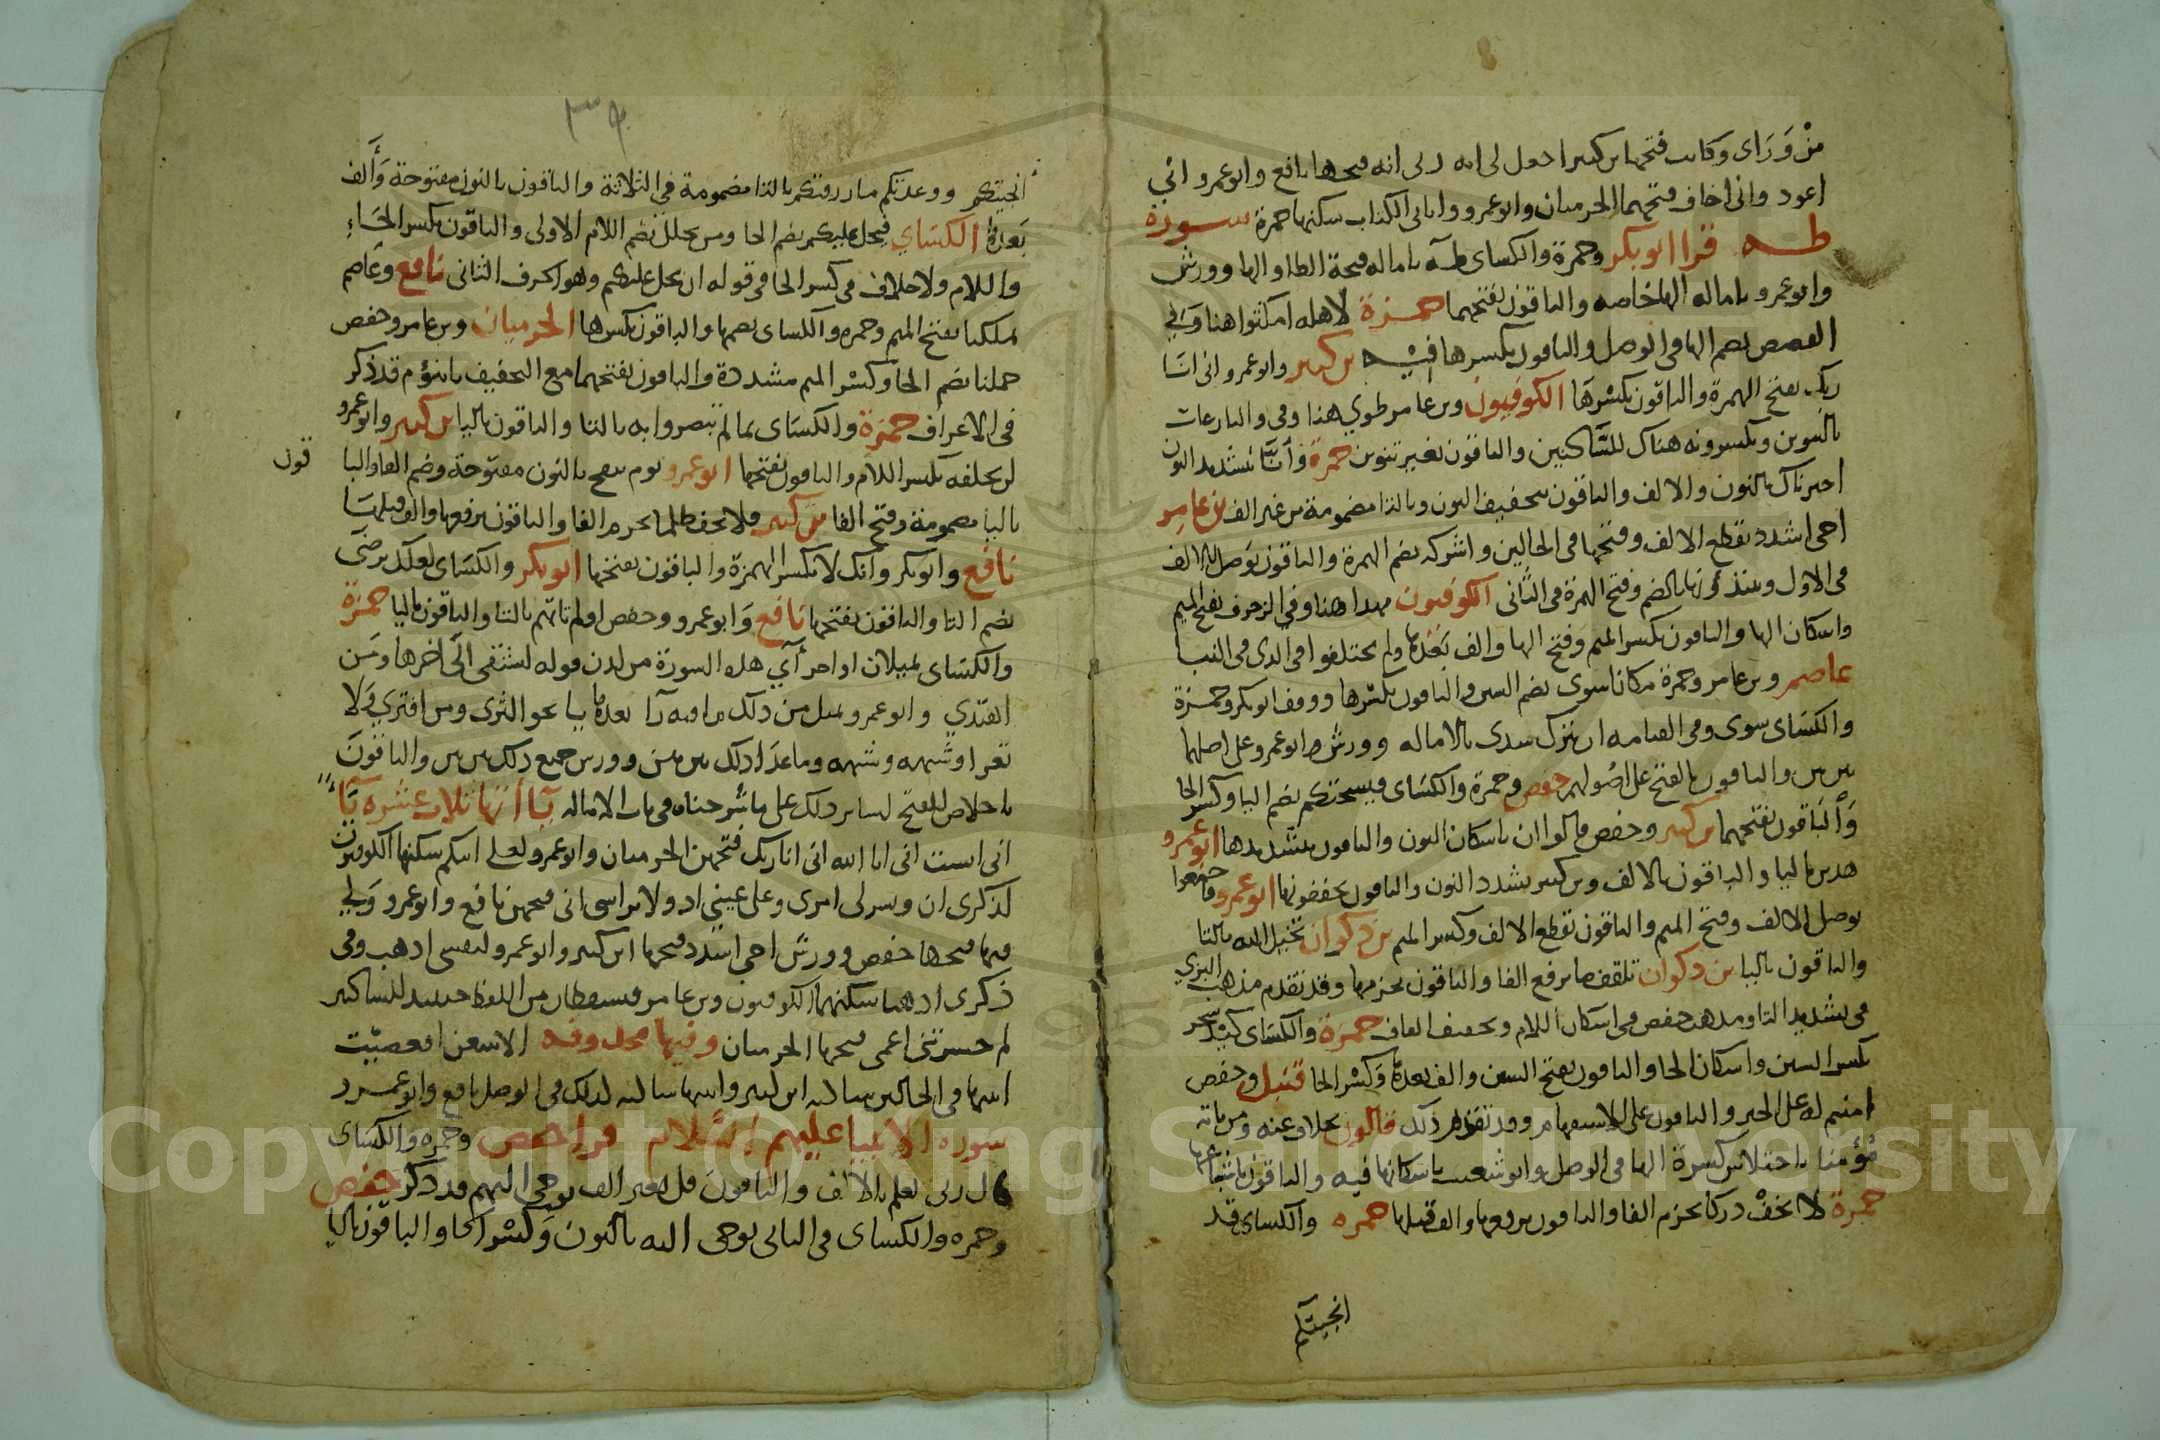 من وراى وكانت فتحها بن كثير اجعل لى ايه ربى انه فتحها نافع وابو عمرو انى
اعوذ وانى اخاف فتحهما الحرميان وابو عمرو واتانى الكتاب سكنها حمزة سورة
طه قرا ابو بكر وحمزة والكساى طه باماله فتحة الطا والها وورش
وابو عمرو باماله الها خاصه والباقون بفتحهما حمزة لاهله امكثوا هنا وفى
القصص بضم الها فى الوصل والباقون بكسرها فيه بن كثير وابو عمرو انى انا
ربك بفتح الهمزة والباقون بكسرها الكوفيون وبن عامر طوى هنا وفى والنازعات
بالتنوين ويكسرونه هناك للساكنين والباقون بغير تنوين حمزة وانا بتشديد النون
اخترناك بالنون والالف والباقون بتخفيف النون وبالتا مضمومة من غير الف بن عامر
اخى اشدد بقطع الالف وفتحها فى الحالين واشركه بضم الهمزة والباقون بوصل الالف
فى الاول ويبتدؤنها بالضم وفتح الهمزة فى الثانى الكوفيون مهدا هنا وفى الزخرف بفتح الميم
واسكان الها والباقون بكسر الميم وفتح الها والف بعدها ولم يختلفوا فى الذى فى النبا
عاصم وبن عامر وحمزة مكانا سوى بضم السين والباقون بكسرها ووقف ابو بكر وحمزة
والكساى سوى وفى القيامه ان يترك سدى بالاماله وورش وابو عمرو على اصلهما
بين بين والباقون بالفتح على اصولهم حفص وحمزة والكساى فيسحتكم بضم اليا وكسر الحا
والباقون بفتحهما بن كثير وحفص قالوا ان باسكان النون والباقون بتشديدها ابو عمرو
هذين باليا والباقون بالالف وبن كثير يشدد النون والباقون يخففونها ابو عمرو فاجمعوا
بوصل الالف وفتح الميم والباقون بقطع الالف وكسر الميم بن ذكوان تخيل اليه بالتا
والباقون باليا بن ذكوان تلقف ما برفع الفا والباقون بجزمها وقد تقدم مذهب البزى
فى تشديد التا ومذهب حفص فى اسكان اللام وتخفيف القاف حمزة والكساى كيد سحر
بكسر السين واسكان الحا والباقون بفتح السين والف بعدها وكسر الحا قنبل وحفص
امنتم له على الخبر والباقون على الاستفهام وقد تقدم ذلك قالون بخلاف عنه ومن ياته
مؤمنا باختلاس كسرة الها فى الوصل وابو شعيب باسكانها فيه والباقون باشباعها
حمزة لا تخف دركا بجزم الفا والباقون برفعها والف قبلها حمزه والكساى قد
انجيتكم
انجيتكم ووعدتكم ما رزقتكم بالتا مضمومة فى الثلاثة والباقون بالنون مفتوحة والف
بعدها الكساى فيحل عليكم بضم الحا ومن يحلل بضم اللام الاولى والباقون بكسر الحاء
واللام ولا خلاف فى كسر الحا فى قوله ان يحل عليكم وهو الحرف الثانى نافع وعاصم
بملكنا بفتح الميم وحمزه والكساى بضمها والباقون بكسرها الحرميان وبن عامر وحفص
حملنا بضم الحا وكسر الميم مشددة والباقون بفتحهما مع التخفيف يابنؤم قد ذكر
فى الاعراف حمزة والكساى بما لم تبصروا به بالتا والباقون باليا بن كثير وابو عمرو
لن تخلفه بكسر اللام والباقون بفتحها ابو عمرو يوم ننفخ بالنون مفتوحة وضم الفا والبا
قون
باليا مضمومة وفتح الفا بن كثير فلا يخف ظلما بجزم الفا والباقون برفعها والف قبلها
نافع وابو بكر وانك لا بكسر الهمزة والباقون بفتحها ابو بكر والكساى لعلك ترضى
بضم التا والباقون بفتحها نافع وابو عمرو وحفص اولم تاتهم بالتا والباقون باليا حمزة
والكساى يميلان اواخر آى هذه السورة من لدن قوله لتشقى الى اخرها ومن
اهتدى وابو عمرو يميل من ذلك ما فيه را بعدها يا نحو الثرى ومن افترى ولا
تعرا وشبهه وما عدا ذلك بين بين وورش جميع ذلك بين بين والباقون
باخلاص الفتح لسائر ذلك على ما شرحناه فى باب الاماله يا اتها ثلاث عشره يا
انى انست انى انا الله انى انا ربك فتحهن الحرميان وابو عمرو لعلى اتيكم سكنها الكوفيون
لذكرى ان ويسر لى امرى وعلى عينى اذ ولا براسى انى فتحهن نافع وابو عمرو ولى
فيها فتحها حفص وورش اخى اشدد فتحها ابن كثير وابو عمرو لنفسى اذهب وفى
ذكرى اذهبا سكنهما الكوفيون وبن عامر فيسقطان من اللفظ حينئذ للساكنين
لم حشرتنى اعمى فتحها الحرميان وفيها محذوفه الا تتبعن افعصيت
اثبتها فى الحالين ساكنه ابن كثير واثبتها ساكنه كذلك فى الوصل نافع وابو عمرو
سورة الانبيا عليهم السلام قرا حفص وحمزه والكساى
قال ربى يعلم بالالف والباقون قل بغير الف نوحى اليهم قد ذكر حفص
وحمزه والكساى فى الثانى نوحى اليه بالنون وكسر الحا والباقون باليا
Copyright © King Saud University